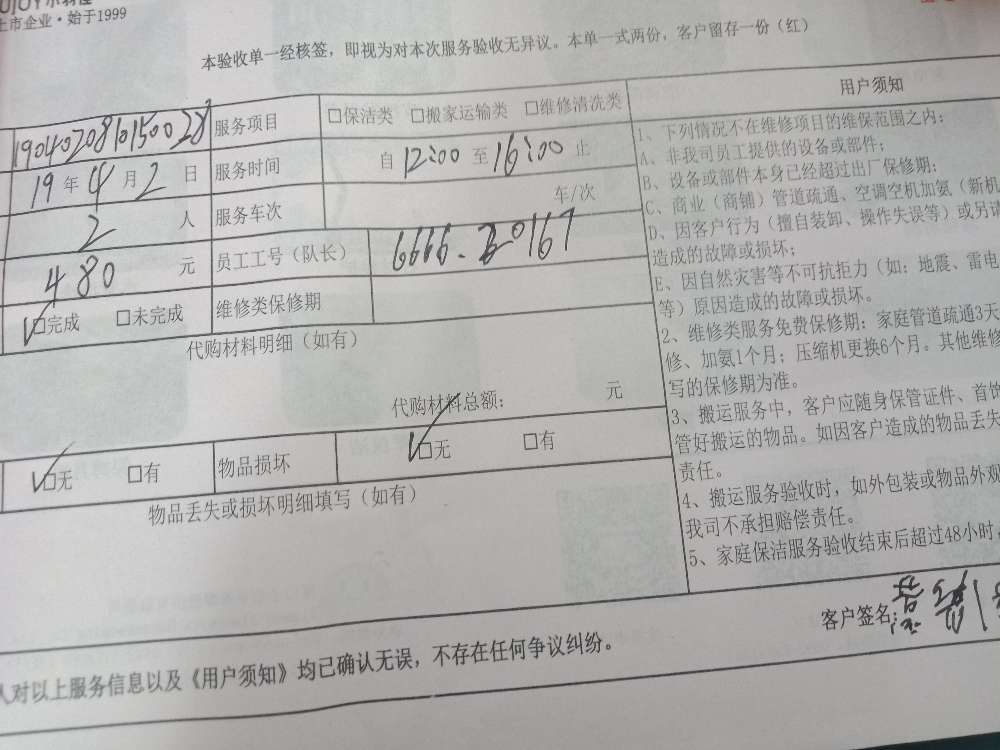 上市企业·始于1999
本验收单一经核签，即视为对本次服务验收无异议。本单一式两份，客户留存一份（红）
1904020810150028 服务项目 □保洁类 □搬家运输类 □维修清洗类
19 年 4 月 2 日 服务时间 自 12:00 至 16:00 止
2 人 服务车次 车/次
480 元 员工工号（队长） 6666.20167
□完成 □未完成 维修类保修期
代购材料明细（如有）
代购材料总额： 元
□无 □有 物品损坏 □无 □有
物品丢失或损坏明细填写（如有）
用户须知
1、下列情况不在维修项目的维保范围之内：
A、非我司员工提供的设备或部件；
B、设备或部件本身已经超过出厂保修期；
C、商业（商铺）管道疏通、空调空机加氨（新机
D、因客户行为（擅自装卸、操作失误等）或另请
造成的故障或损坏；
E、因自然灾害等不可抗拒力（如：地震、雷电
等）原因造成的故障或损坏。
2、维修类服务免费保修期：家庭管道疏通3天
修、加氨1个月；压缩机更换6个月。其他维修
写的保修期为准。
3、搬运服务中，客户应随身保管证件、首饰
管好搬运的物品。如因客户造成的物品丢失
责任。
4、搬运服务验收时，如外包装或物品外观
我司不承担赔偿责任。
5、家庭保洁服务验收结束后超过48小时，
客户签名：
人对以上服务信息以及《用户须知》均已确认无误，不存在任何争议纠纷。